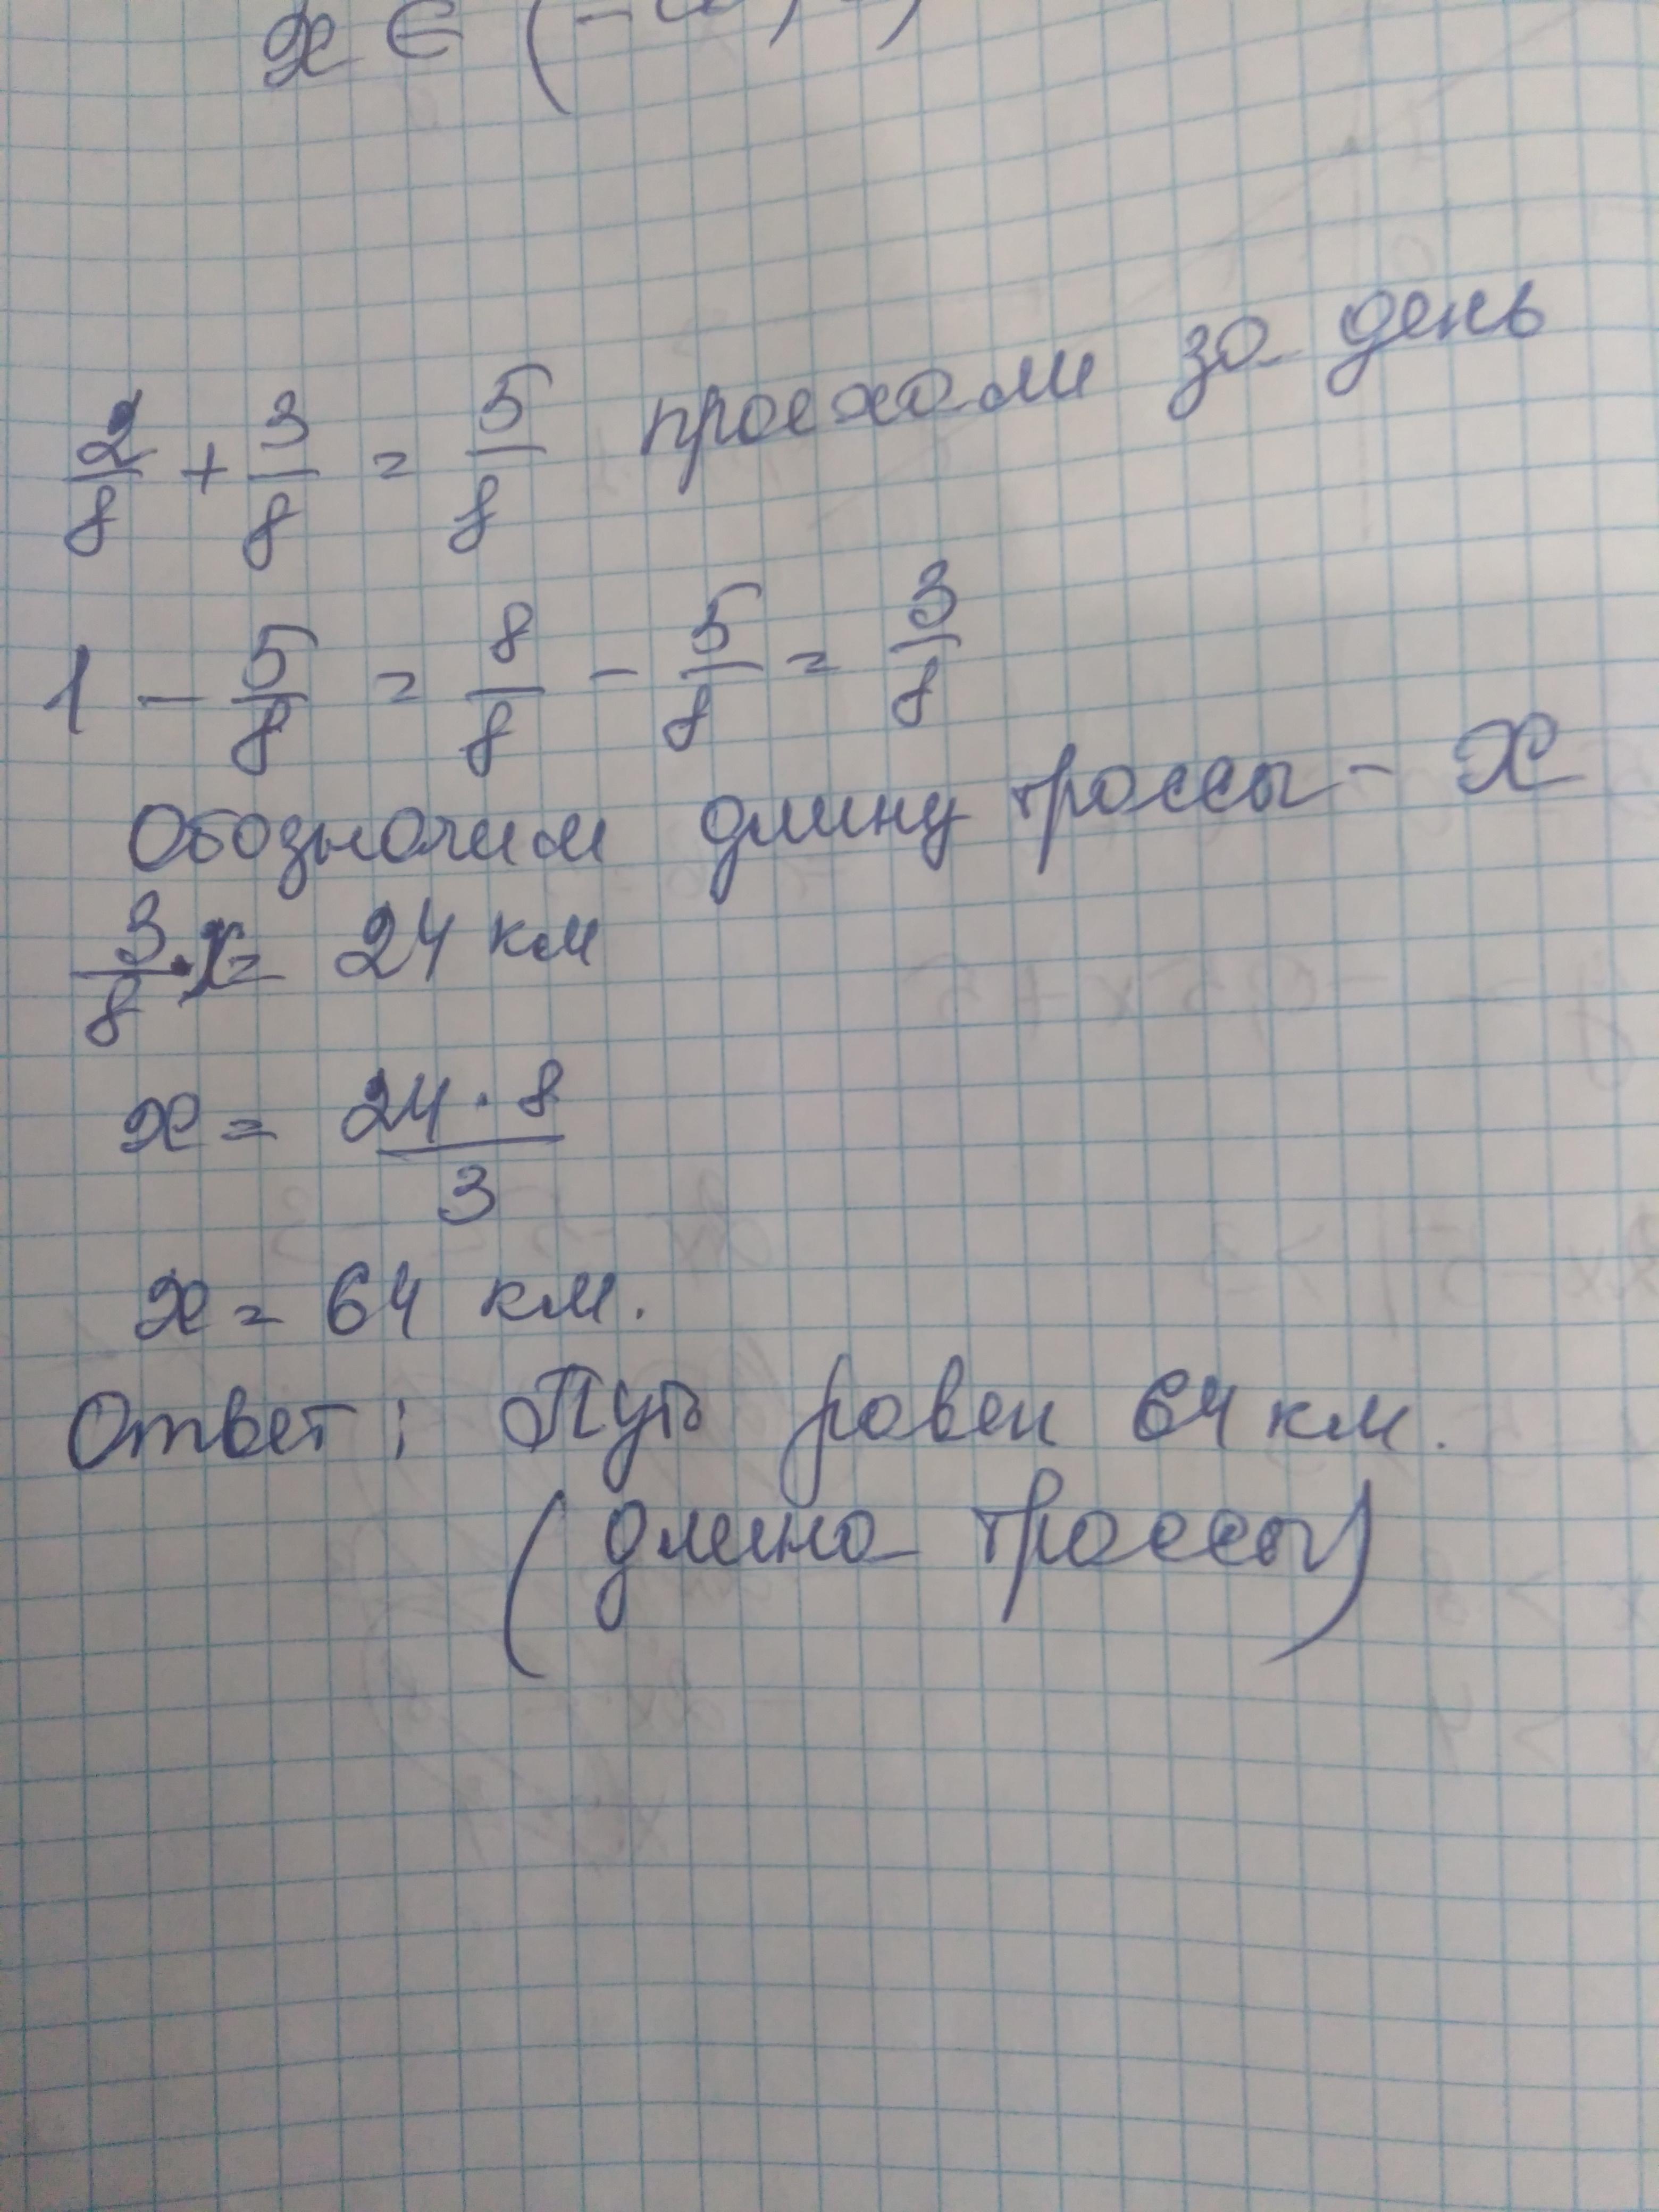 x ∈ (-
2/8 + 3/8 = 5/8 проехали за день
1 - 5/8 = 8/8 - 5/8 = 3/8
Обозначим длину трассы - X
3/8 · x = 24 км
x = 24 · 8 / 3
x = 64 км.
Ответ: Путь равен 64 км.
(длина трассы)